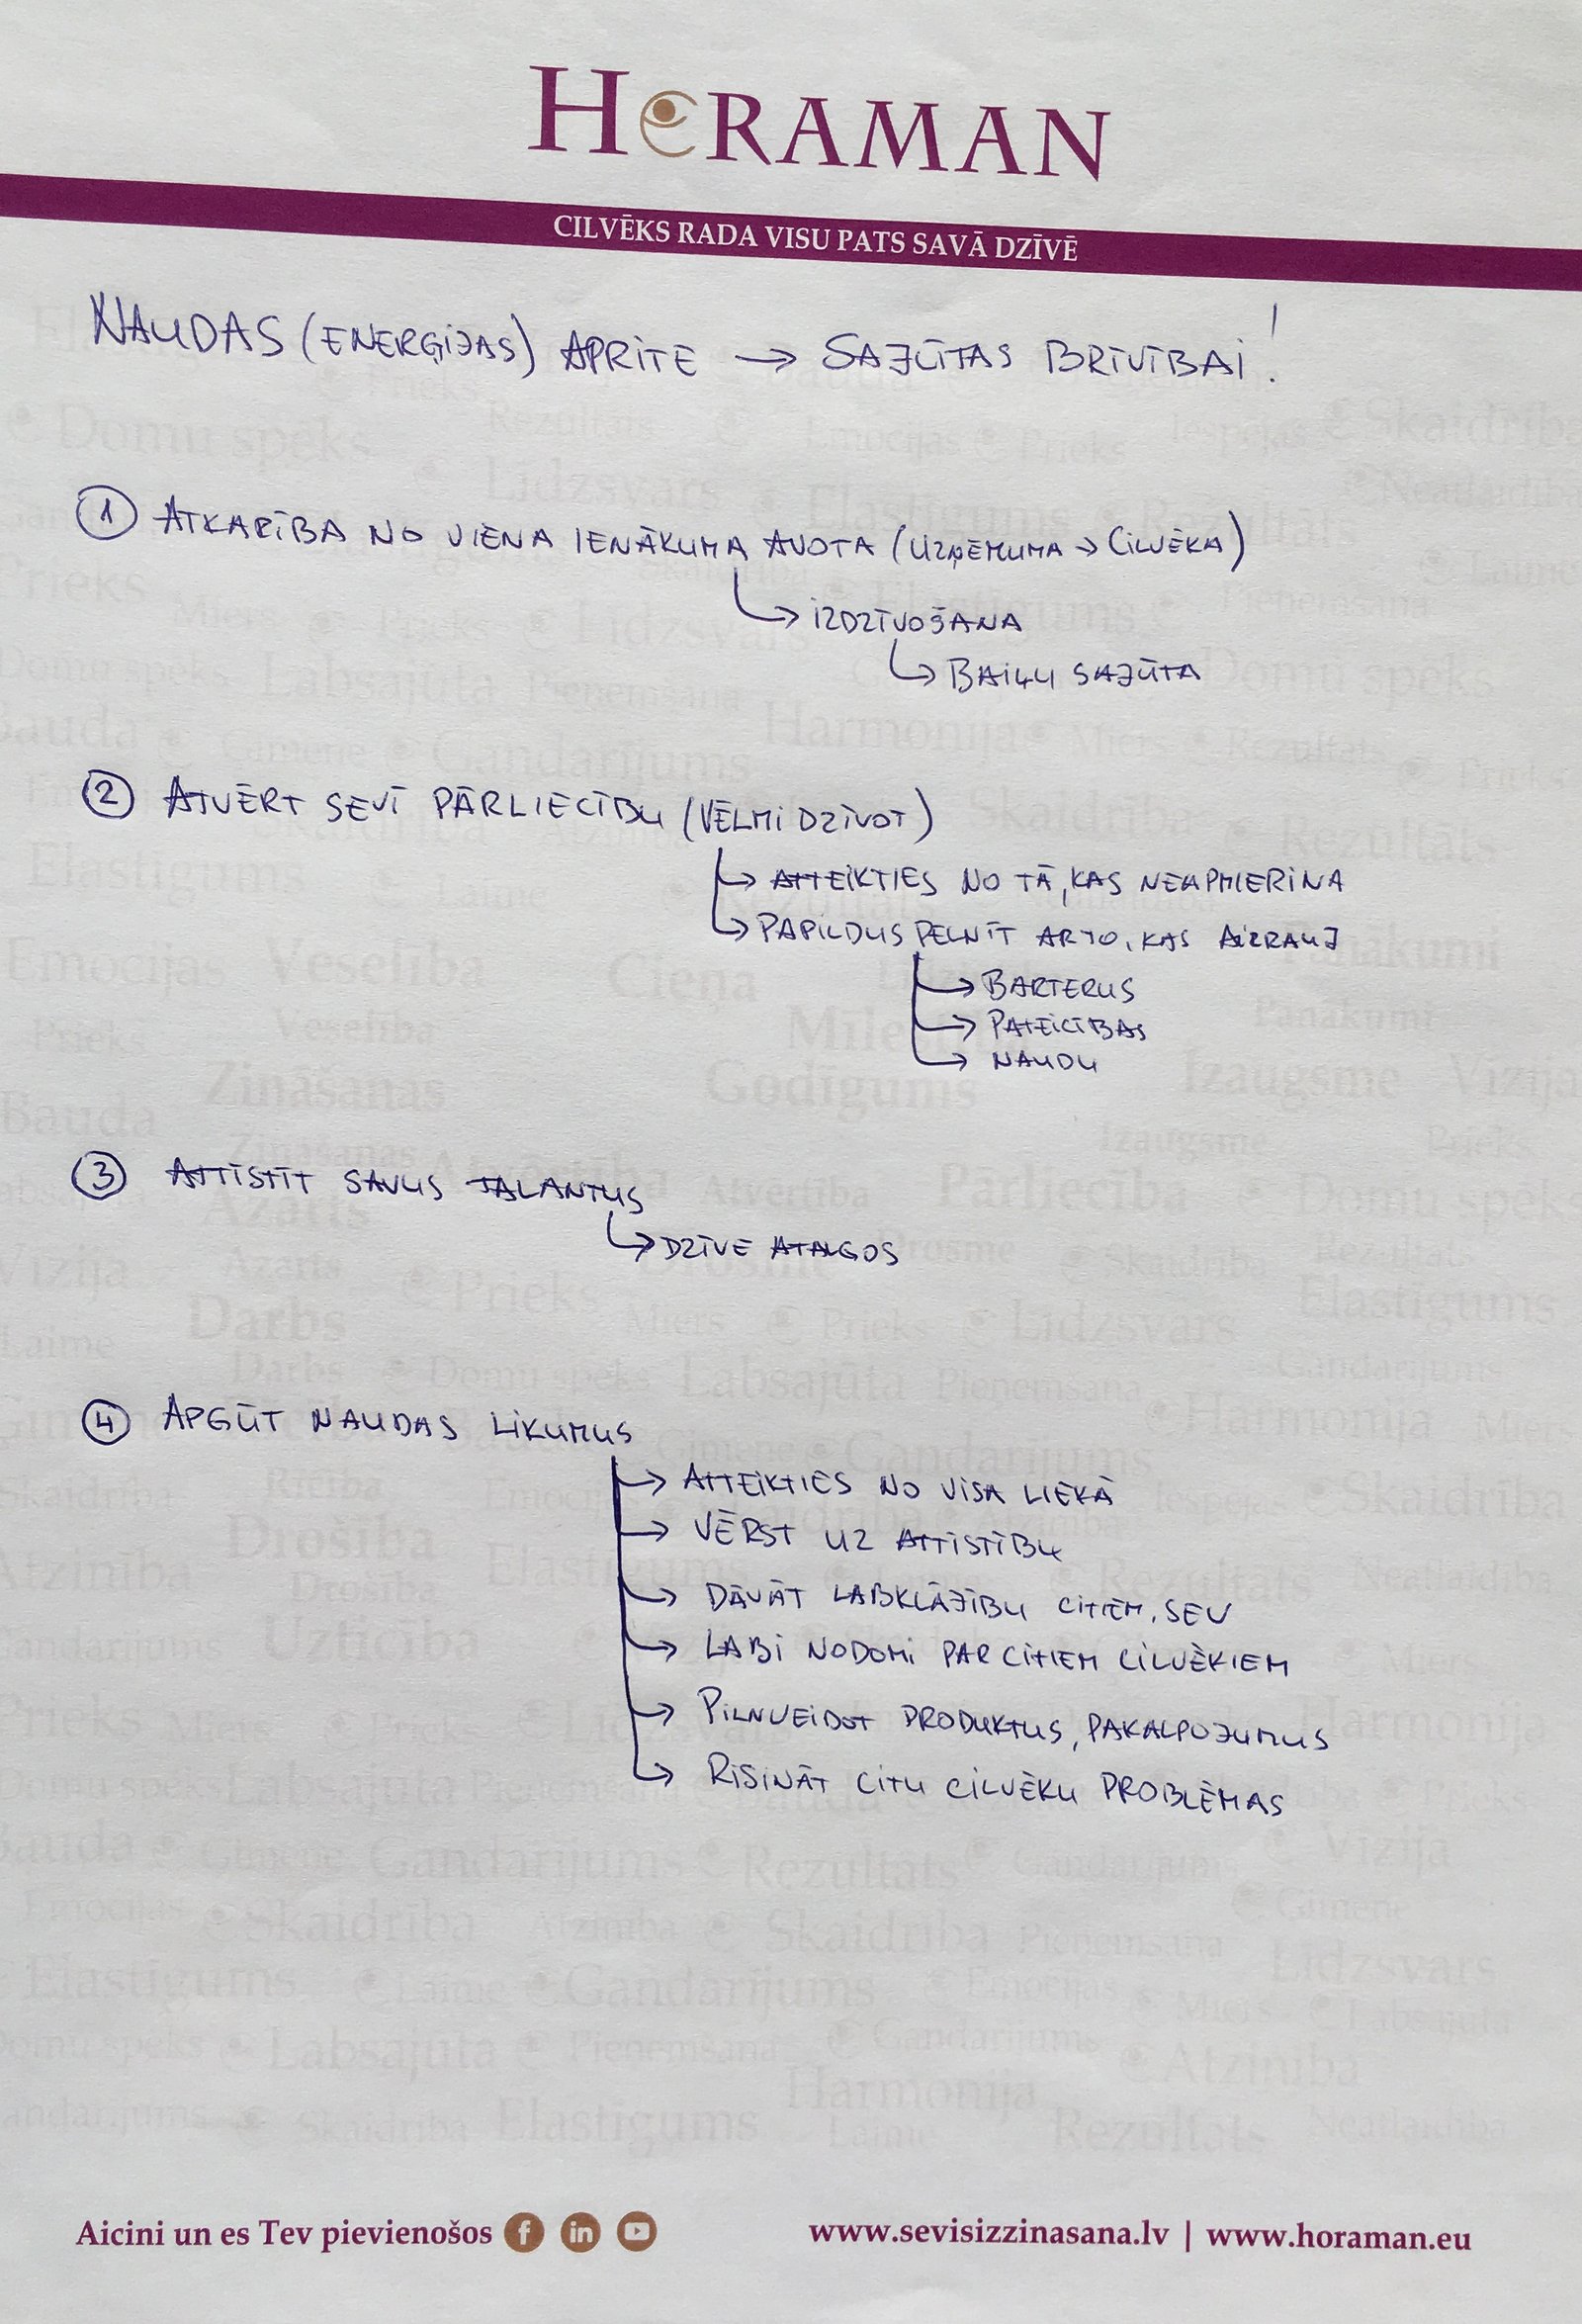 HORAMAN
CILVĒKS RADA VISU PATS SAVĀ DZĪVĒ
NAUDAS (ENERĢIJAS) APRITE → SAJŪTAS BRĪVĪBAI!
① ATKARĪBA NO VIENA IENĀKUMA AVOTA (UZŅĒMUMA → CILVĒKA)
→ IZDZĪVOŠANA
→ BAIĻU SAJŪTA
② ATVĒRT SEVĪ PĀRLIECĪBU (VĒLMI DZĪVOT)
→ ATTEIKTIES NO TĀ, KAS NEAPMIERINA
→ PAPILDUS PELNĪT AR TO, KAS AIZRAUJ
→ BARTERUS
→ PATEICĪBAS
→ NAUDU
③ ATTĪSTĪT SAVUS TALANTUS
→ DZĪVE ATALGOS
④ APGŪT NAUDAS LIKUMUS
→ ATTEIKTIES NO VISA LIEKĀ
→ VĒRST UZ ATTĪSTĪBU
→ DĀVĀT LABKLĀJĪBU CITIEM, SEV
→ LABI NODOMI PAR CITIEM CILVĒKIEM
→ PILNVEIDOT PRODUKTUS, PAKALPOJUMUS
→ RISINĀT CITU CILVĒKU PROBLĒMAS
Aicini un es Tev pievienošos
www.sevisizzinasana.lv | www.horaman.eu